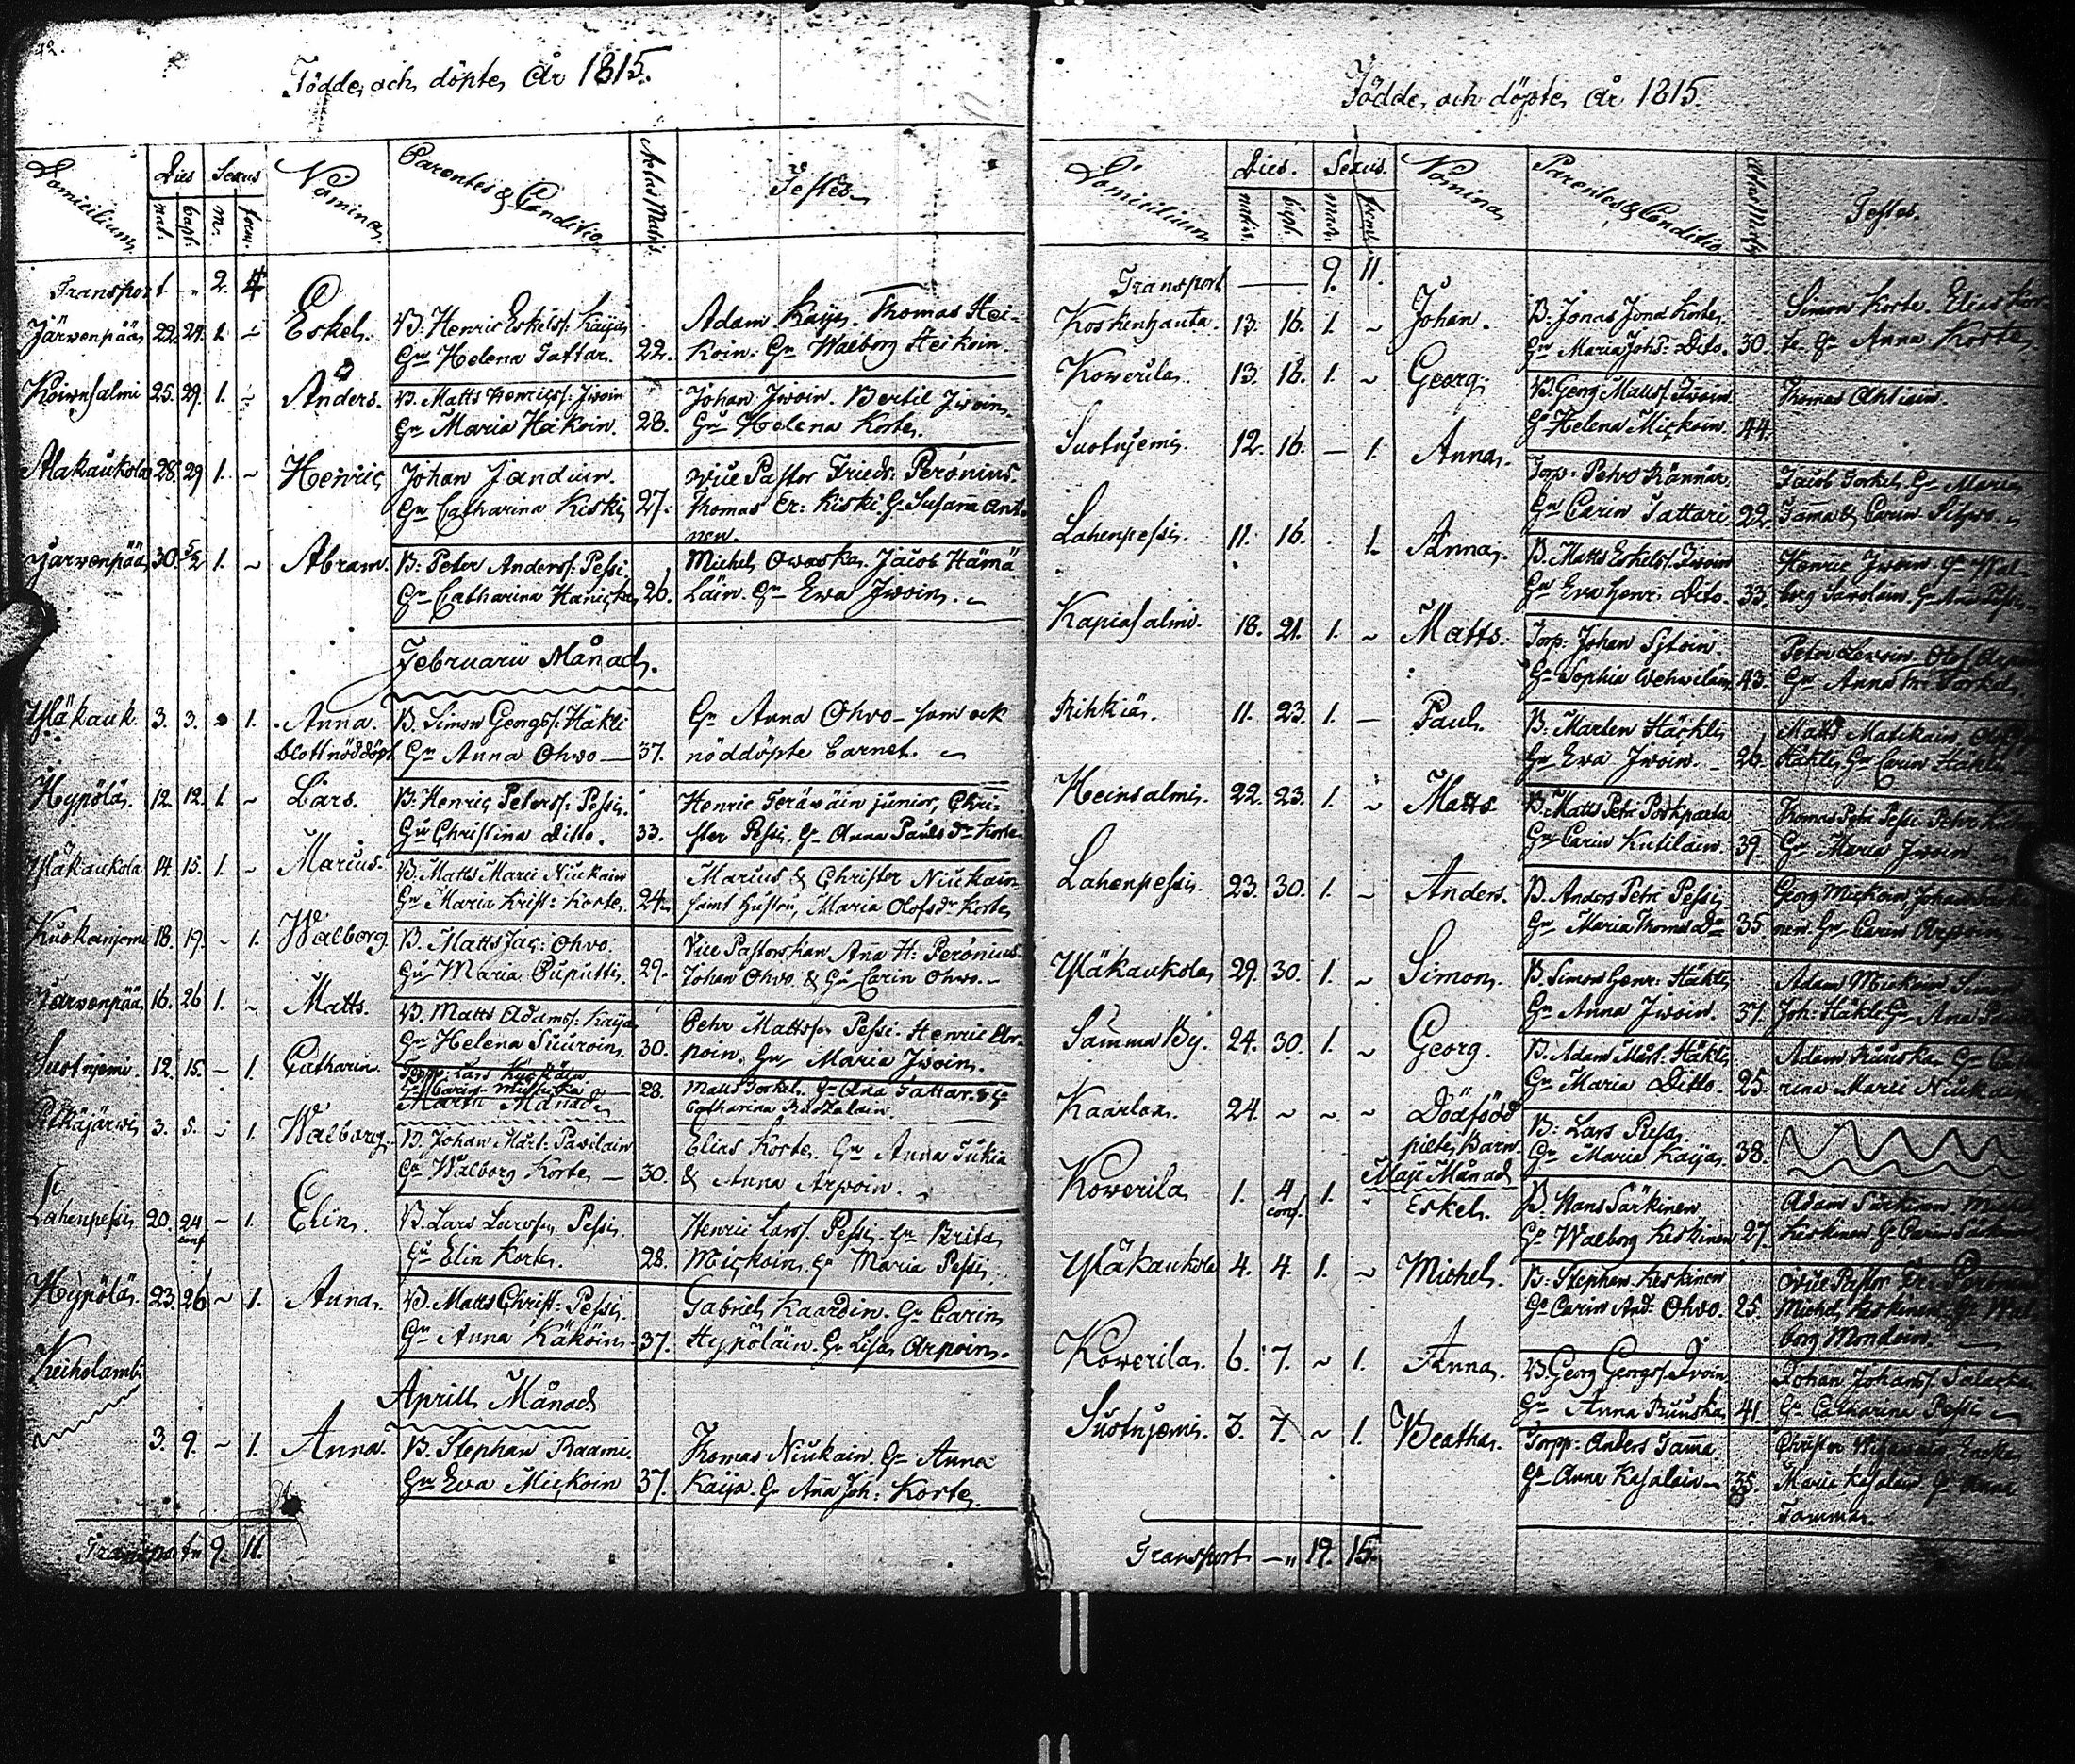 42.
Födde och döpte År 1815.
Domicilium Dies Sexus Nomina Parentes & Conditio Aetas Matris Testes
nat. bapt. m. foem.
Transport - „ 2. 4
Järvenpää 22. 29. 1. ~ Eskel. B: Henric Eskelss: Kaija
Gu Helena Tattar. 22. Adam Kaija. Thomas Hei-
koin. Gu Walborg Heikoin.
Koiwusalmi 25. 29. 1. ~ Anders. B. Matts Henricss: Iwoin
Gu Maria Hakoin. 28. Johan Iwoin. Bertil Iwoin.
Gu Helena Korte.
Alakaukola 28. 29. 1. ~ Henric Johan
Gu Catharina Kiski 27. Vice Pastor Fried: Peronius.
Thomas Er: Kiski. Gu Susanna
nen.
Järvenpää 30. 5/2 1. ~ Abram. B: Peter Anderss: Pessi.
Gu Catharina 26. Michel Owaska. Jacob Hämä
läin. Gu Ewa Iwoin.
Februarii Månad.
Yläkauk. 3. 3. 1. Anna. B. Simon Georgss: Häkli
blott nöddöpt Gu Anna Ohvo — 37. Gu Anna Ohvo – som ock
nöddöpte barnet.
Hypölä. 12. 12. 1. ~ Lars. B: Henric Peterss: Pessi.
Gu Christina Ditto. 33. Henric Teräväin junior, Chri-
ster Pessi. Gu Anna Pauls dr Korte
Yläkaukola 14. 15. 1. ~ Marcus. B. Matts Marci Niukain
Gu Maria Krist: Korte. 24. Marcus & Christer Niukain
samt hustru, Maria Olofs dr Korte
Kuokanjemi 18. 19. ~ 1. Walborg. B. Matts Jac: Ohvo.
Gu Maria Puputti. 29. Vice Pastorskan Anna H: Peronius
Johan Ohvo & Gu Carin Ohvo.
Järvenpää 16. 26 1. ~ Matts. B. Matts Adamss: Kaija
Gu Helena Suuroin. 30. Pehr Mattsson Pessi. Henric Ar-
poin. Gu Maria Iwoin.
Suotnjemi. 12. 15. ~ 1. Catharin. Torpp: Lars
Gu Carin 28. Matts Torkel. Gu Anna Tattar. & Gu
Catharina
Martii Månad
Pitkäjärwi 3. 5. ~ 1. Walborg. B. Johan Mårt: Pawilain
Gu Walborg Korte — 30. Elias Korte. Gu Anna Tukia
& Anna Arpoin.
Lahenpessi 20. 24 ~ 1. Elin. B. Lars Larsson Pessi.
conf Gu Elin Korte. 28. Henric Larss: Pessi. Gu Brita
Mickoin. Gu Maria Pessi
Hypölä 23. 26 ~ 1. Anna. B. Matts Christ: Pessi
Gu Anna Käköin 37. Gabriel Kaardin. Gu Carin
Hypöläin. Gu Lisa Arpoin.
Keiholambi
Aprill Månad
3. 9. ~ 1. Anna. B. Stephan Raami.
Gu Eva Mickoin 37. Thomas Niukain. Gu Anna
Kaija. Gu Anna Joh: Korte.
Transport „ 9. 11.
Födde och döpte År 1815.
Domicilium Dies. Sexus. Nomina Parentes & Conditio Aetas Matris Testes.
natis. bapt. masc. foem.
Transport — 9. 11.
Koskenhauta. 13. 16. 1. ~ Johan. B. Jonas Jona Korte.
Gu Maria Joh: Dito. 30. Simon Korte. Elias Kor-
te. Gu Anna Korte
Kowerila. 13. 16. 1. ~ Georg. B. Georg Mattss: Iwoin.
Gu Helena Mickoin. 44. Thomas Ahtiain.
Suotnjemi. 12. 16. — 1. Anna. Torp: Petro Kännär.
Gu Carin Tattari 22. Jacob Torkel. Gu Maria
Tamma & Carin
Lahenpessi. 11. 16. 1. Anna. B. Matts Eskelss: Iwoin
Gu Eva Henr: Dito. 33. Henric Iwoin. Gu Wal-
borg Gu Anna Pessi
Kapiasalmi. 18. 21. 1. ~ Matts. Torp: Johan
Gu Sophia 43. Peter Olof
Gu Anna Torkel.
Rihkiä. 11. 23. 1. — Paul. B: Marten Häckli
Gu Eva Iwoin. 26. Matts Matikain,
Häkli. Gu Carin Häkli
Heinsalmi. 22. 23. 1. ~ Matts B. Matts Petr Poskparta
Gu Carin Kutilain. 39. Thomas Petr Pessi. Pehr
Gu Maria Iwoin
Lahenpessi. 23. 30. 1. ~ Anders. B. Anders Petri Pessi.
Gu Maria Thomæ Do 35. Georg Mickoin, Johan
nen. Gu Carin Arpoin
Yläkaukola 29. 30. 1. ~ Simon. B. Simon Henr: Häkli
Gu Anna Iwoin. 37. Adam Mickoin Simon
Joh: Häkli Gu Anna
Samma By. 24. 30. 1. ~ Georg. B. Adam Mårt: Häkli
Gu Maria Ditto. 25. Adam Ruuska Gu Catha
rina Marci Niukain
Kaarlax. 24. ~ ~ ~ Dödfödd
pilte Barn. B: Lars
Gu Maria Kaija. 38.
Maji Månad
Kowerila 1. 4 1. Eskel. B. Hans Särkinen
conf. Gu Walborg Keskinen 27. Adam Särkinen Michel
Keskinen Gu Carin Särkinen
Yläkaukola 4. 4. 1. ~ Michel. B: Stephan Keskinen
Gu Carin And: Ohvo. 25. Vice Pastor
Michel Keskinen. Gu Wal
borg Mondoin.
Kowerila. 6. 7. ~ 1. Anna. B. Georg Georgss: Iwoin
Gu Anna Ruuska 41. Johan Johanss:
Gu Catharina Pessi
Suotnjemi. 3. 7. ~ 1. Beatha. Torpp: Anders Tamma
Gu Anna Kasalain 35. Christer
Marie Kasalain. Gu Anna
Tamma.
Transport —„ 19. 15.